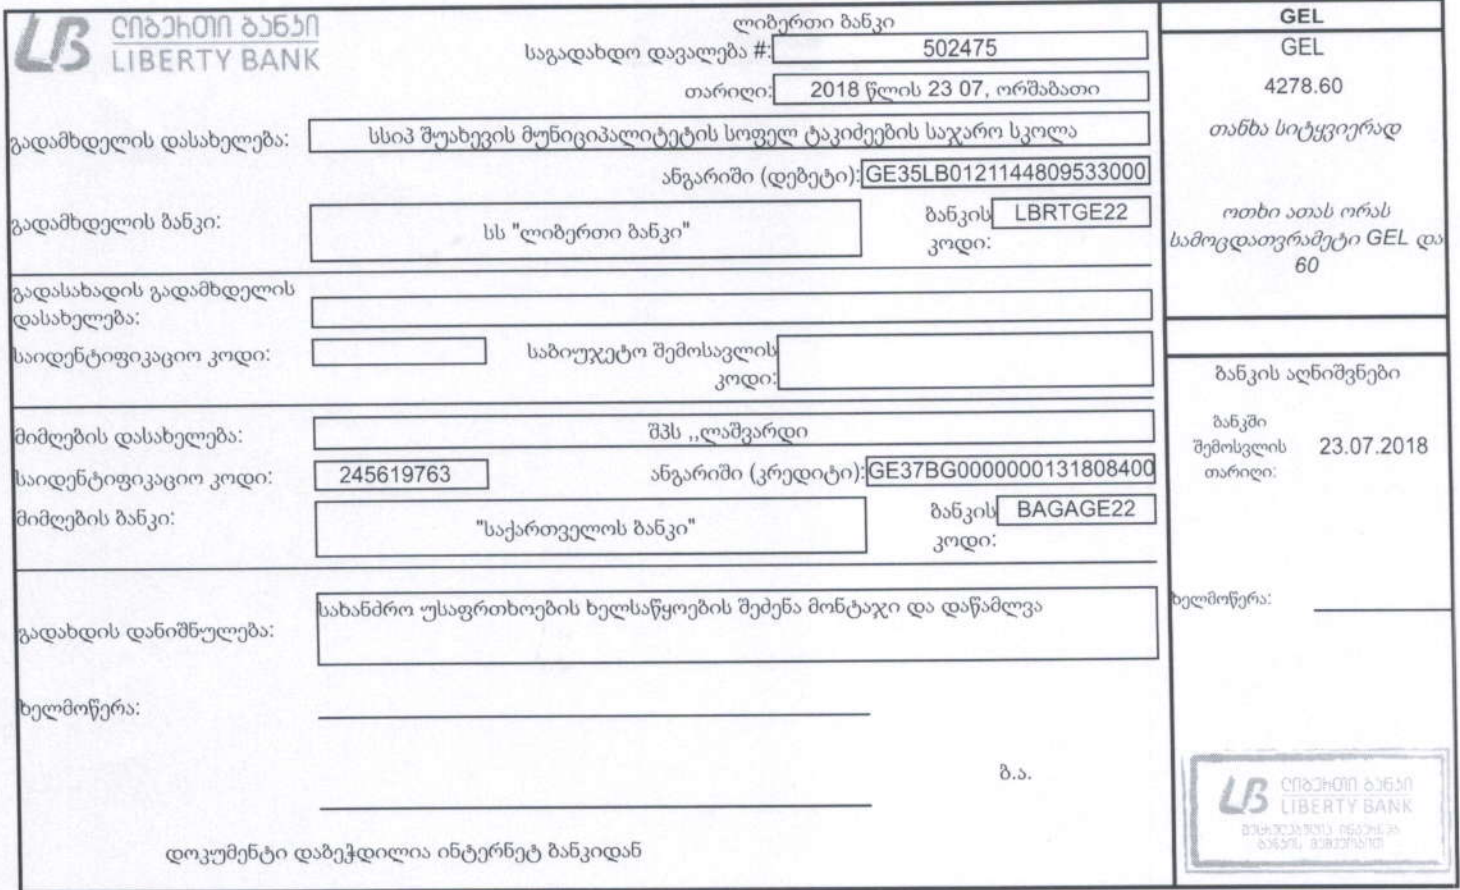 ლიბერთი ბანკი
LIBERTY BANK
ლიბერთი ბანკი
საგადახდო დავალება #: 502475
თარიღი: 2018 წლის 23 07, ორშაბათი
გადამხდელის დასახელება: სსიპ შუახევის მუნიციპალიტეტის სოფელ ტაკიძეების საჯარო სკოლა
ანგარიში (დებეტი): GE35LB0121144809533000
გადამხდელის ბანკი: სს "ლიბერთი ბანკი" ბანკის კოდი: LBRTGE22
გადასახადის გადამხდელის
დასახელება:
საიდენტიფიკაციო კოდი: საბიუჯეტო შემოსავლის
კოდი:
მიმღების დასახელება: შპს ,,ლაშვარდი
საიდენტიფიკაციო კოდი: 245619763 ანგარიში (კრედიტი): GE37BG0000000131808400
მიმღების ბანკი: "საქართველოს ბანკი" ბანკის კოდი: BAGAGE22
გადახდის დანიშნულება: სახანძრო უსაფრთხოების ხელსაწყოების შეძენა მონტაჟი და დაწამლვა
ხელმოწერა:
ბ.ა.
დოკუმენტი დაბეჭდილია ინტერნეტ ბანკიდან
GEL
GEL
4278.60
თანხა სიტყვიერად
ოთხი ათას ორას
სამოცდათვრამეტი GEL და
60
ბანკის აღნიშვნები
ბანკში
შემოსვლის 23.07.2018
თარიღი:
ხელმოწერა:
ლიბერთი ბანკი
LIBERTY BANK